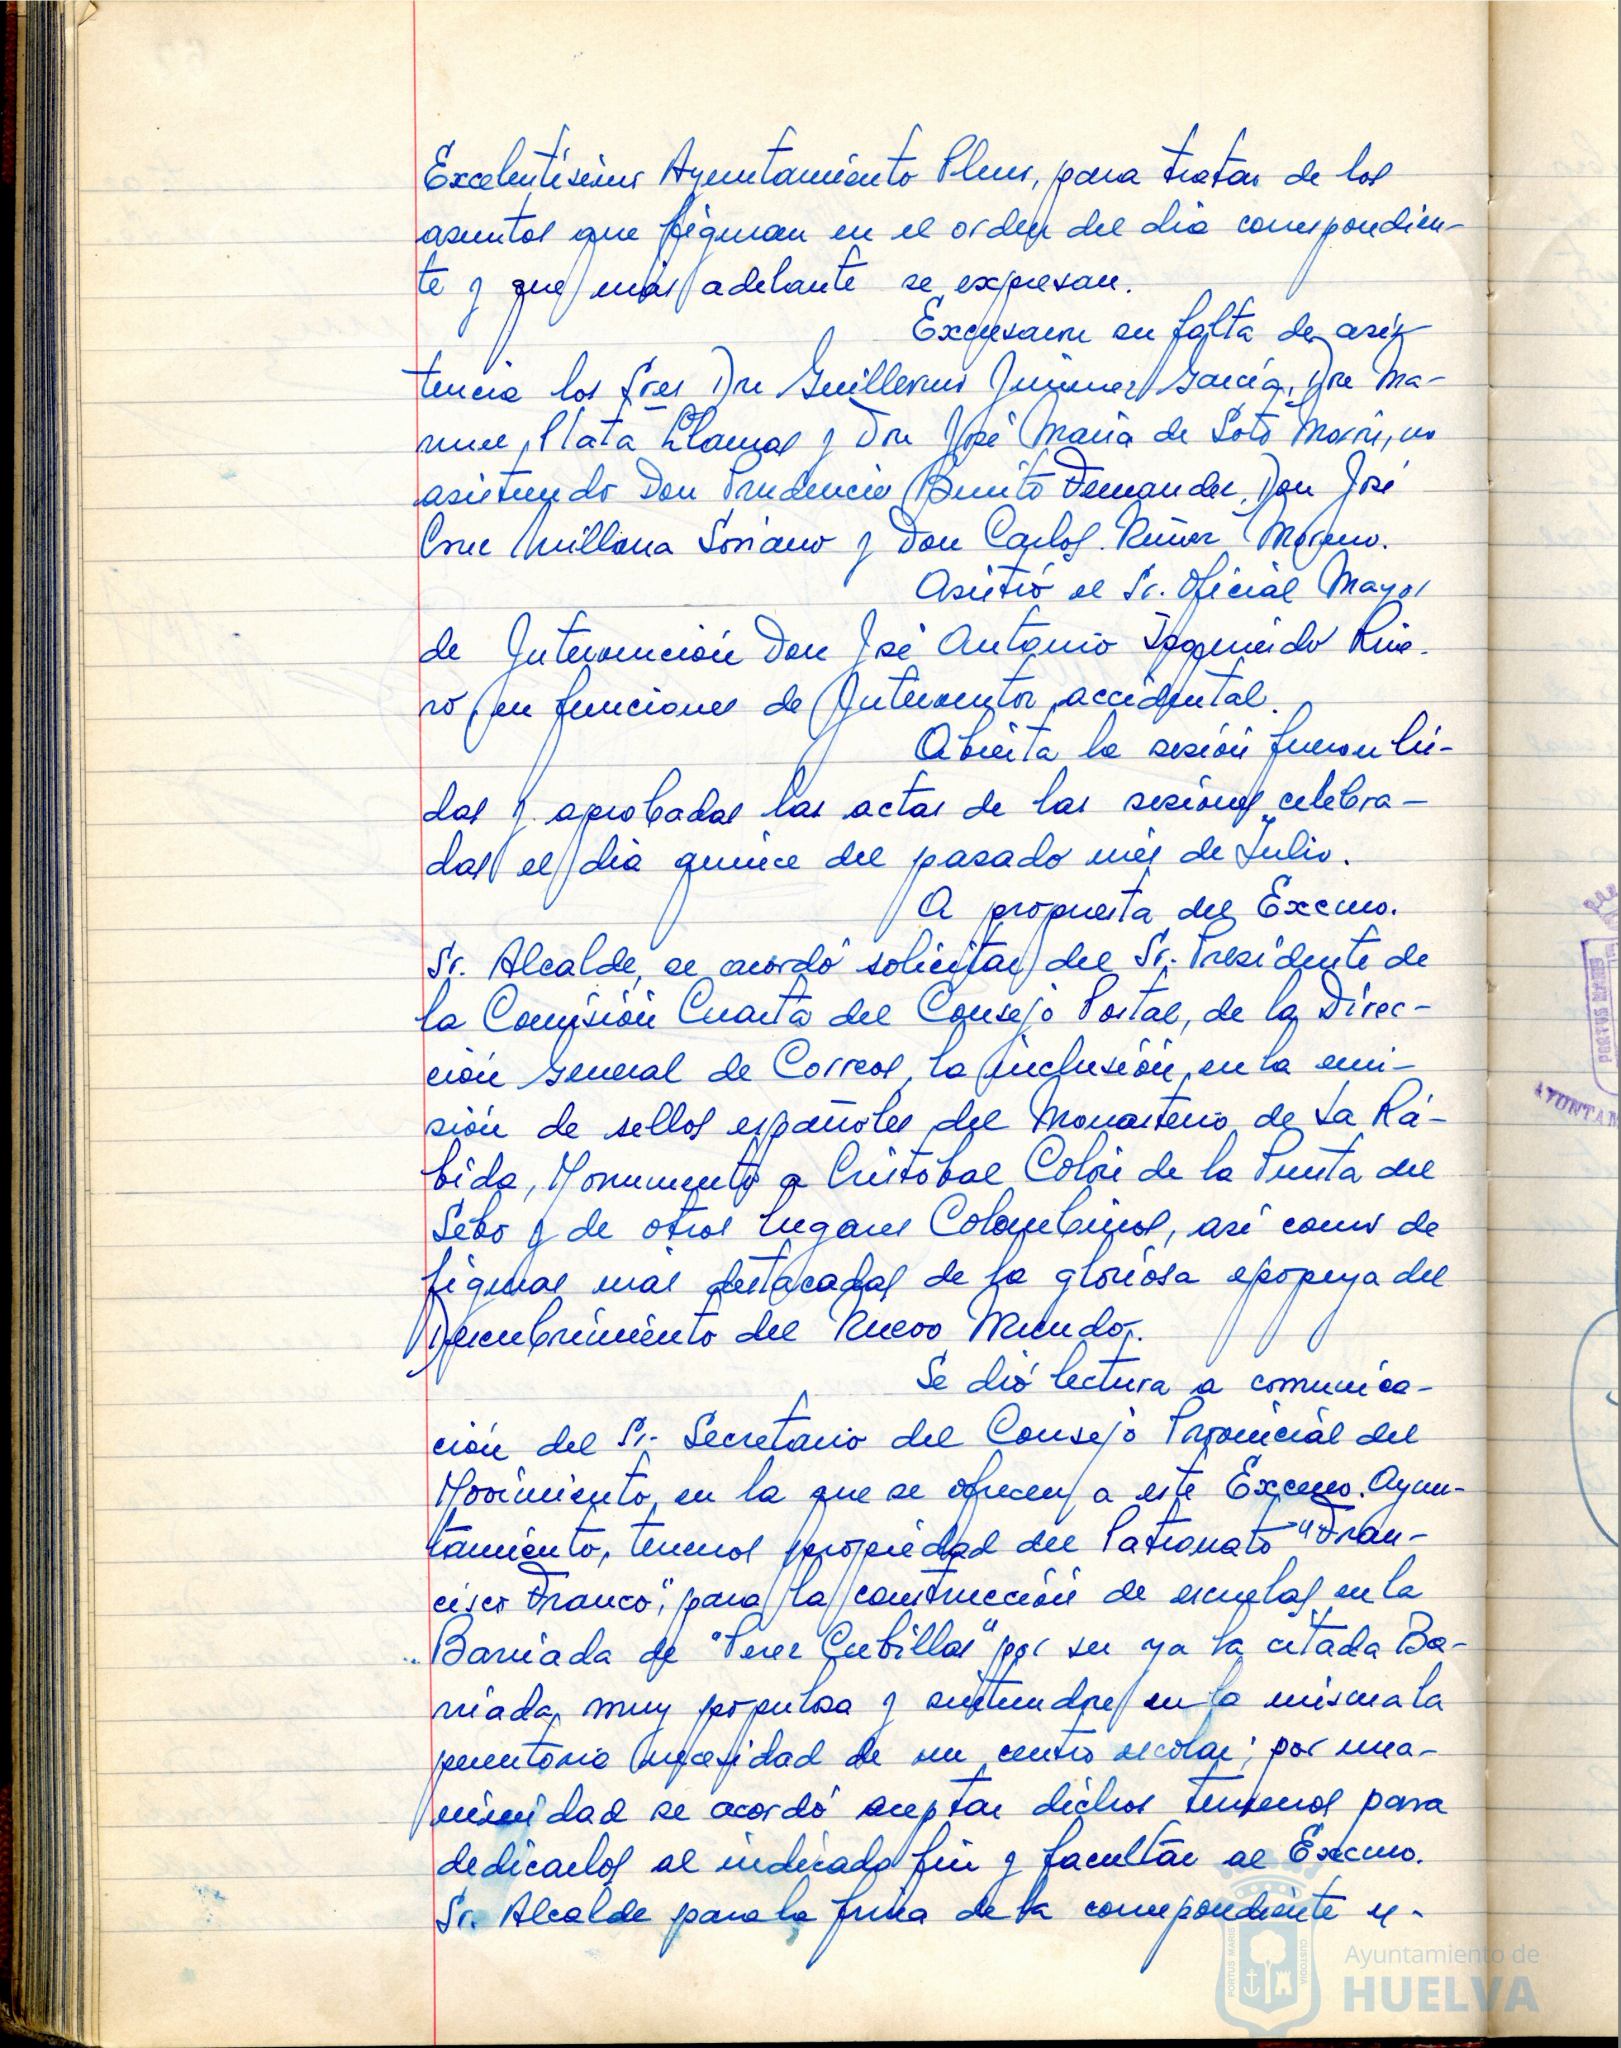 Excelentísimo Ayuntamiento Pleno, para tratar de los
asuntos que figuran en el orden del dia correspondien-
te y que más adelante se expresan.
Excusaron su falta de asis-
tencia los Sres Don Guillermo Jimenez García, Don Ma-
nuel Plata Llamas y Don José María de Soto Morón, no
asistiendo Don Prudencio Benito Fernandez, Don José
Cruz Millana Soriano y Don Carlos Núñez Moreno.
Asistió el Sr. Oficial Mayor
de Intervención Don José Antonio Izquierdo Rive-
ro, en funciones de Interventor accidental.
Abierta la sesión fueron leí-
das y aprobadas las actas de las sesiones celebra-
das el dia quince del pasado mes de Julio.
A propuesta del Excmo.
Sr. Alcalde, se acordó solicitar del Sr. Presidente de
la Comisión Cuarta del Consejo Postal, de la Direc-
ción General de Correos, la inclusión, en la emi-
sión de sellos españoles del Monasterio de La Rá-
bida, Monumento a Cristóbal Colón de la Punta del
Sebo y de otros lugares Colombinos, así como de
figuras más destacadas de la gloriosa epopeya del
Descubrimiento del Nuevo Mundo.
Se dió lectura a comunica-
ción del Sr. Secretario del Consejo Provincial del
Movimiento, en la que se ofrecen a este Excmo. Ayun-
tamiento, terrenos propiedad del Patronato "Fran-
cisco Franco", para la construcción de escuelas en la
Barriada de "Perez Cubillas" por ser ya la citada Ba-
rriada, muy populosa y sentirse en la misma la
perentoria necesidad de un centro escolar; por una-
nimidad se acordó aceptar dichos terrenos para
dedicarlos al indicado fin y facultar al Excmo.
Sr. Alcalde para la firma de la correspondiente es-
PORTUS MARIS
AYUNTAM
PORTUS MARIS
CUSTODIA
Ayuntamiento de
HUELVA